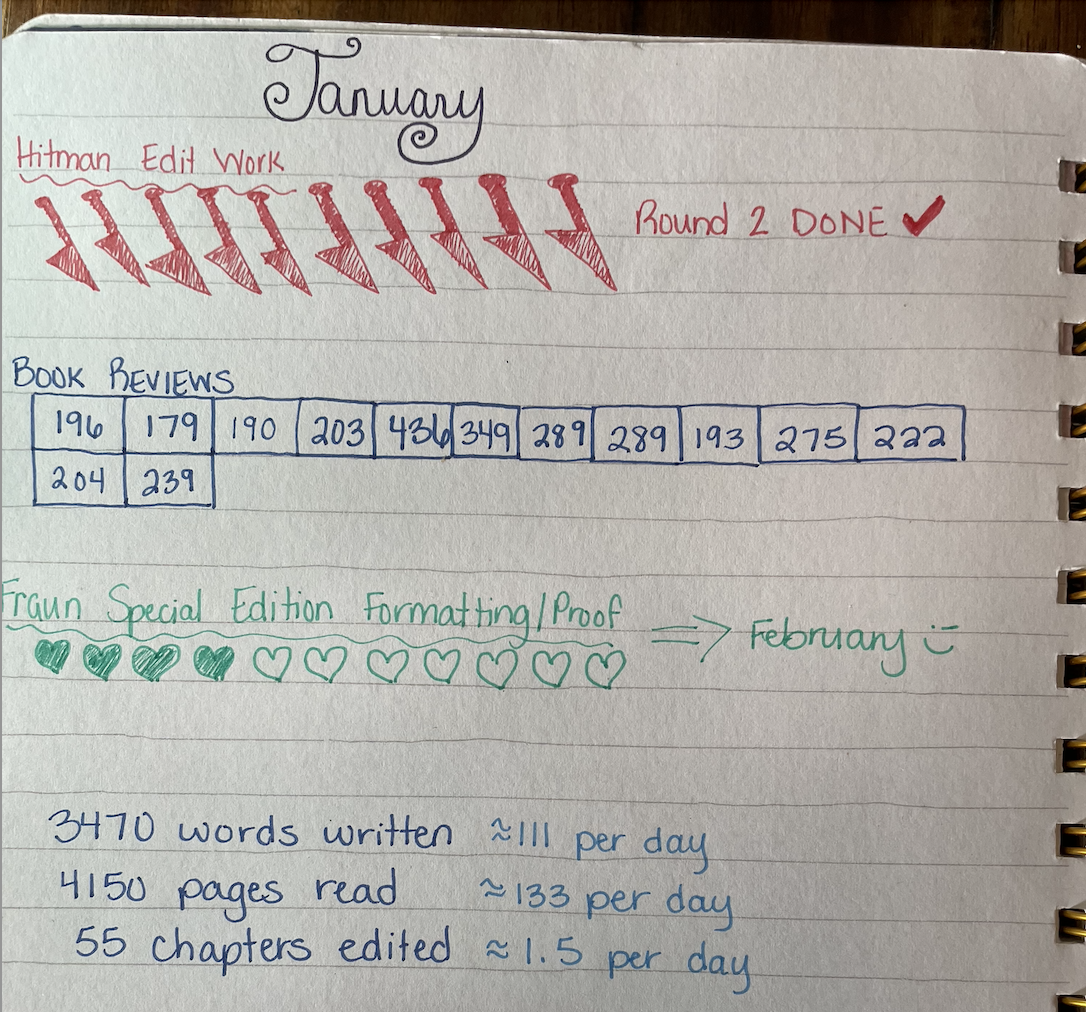 January
Hitman Edit Work
Round 2 DONE ✓
BOOK REVIEWS
196 179 190 203 436 349 289 289 193 275 222
204 239
Fraun Special Edition Formatting/Proof ⇒ February :)
3470 words written ≈111 per day
4150 pages read ≈133 per day
55 chapters edited ≈1.5 per day